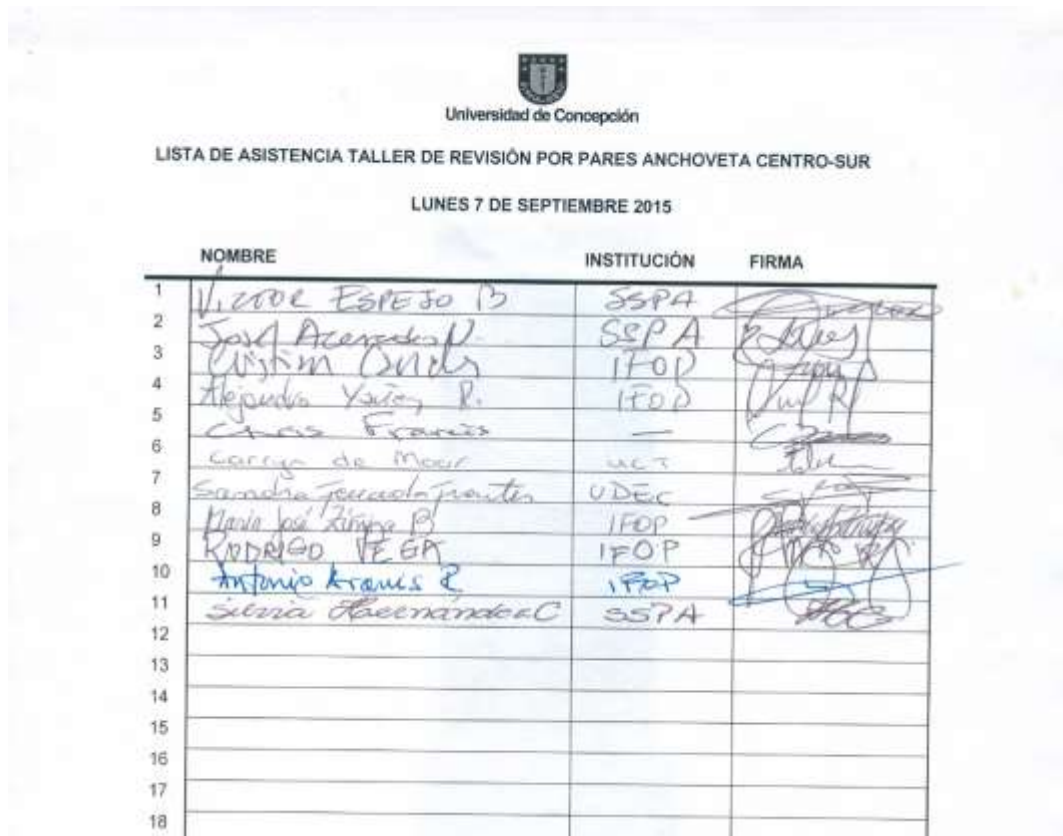 Universidad de Concepción
LISTA DE ASISTENCIA TALLER DE REVISIÓN POR PARES ANCHOVETA CENTRO-SUR
LUNES 7 DE SEPTIEMBRE 2015
NOMBRE INSTITUCIÓN FIRMA
1 VICTOR ESPEJO B SSPA
2 José Acevedo N. SSPA
3 IFOP
4 Alejandro Yáñez R. IFOP
5 Chris Francis —
6 Carryn de Moor UCT
7 Sandra UDEC
8 María José Zúñiga B IFOP
9 RODRIGO VEGA IFOP
10 Antonio Aranis R IFOP
11 Silvia Hernández C SSPA
12
13
14
15
16
17
18